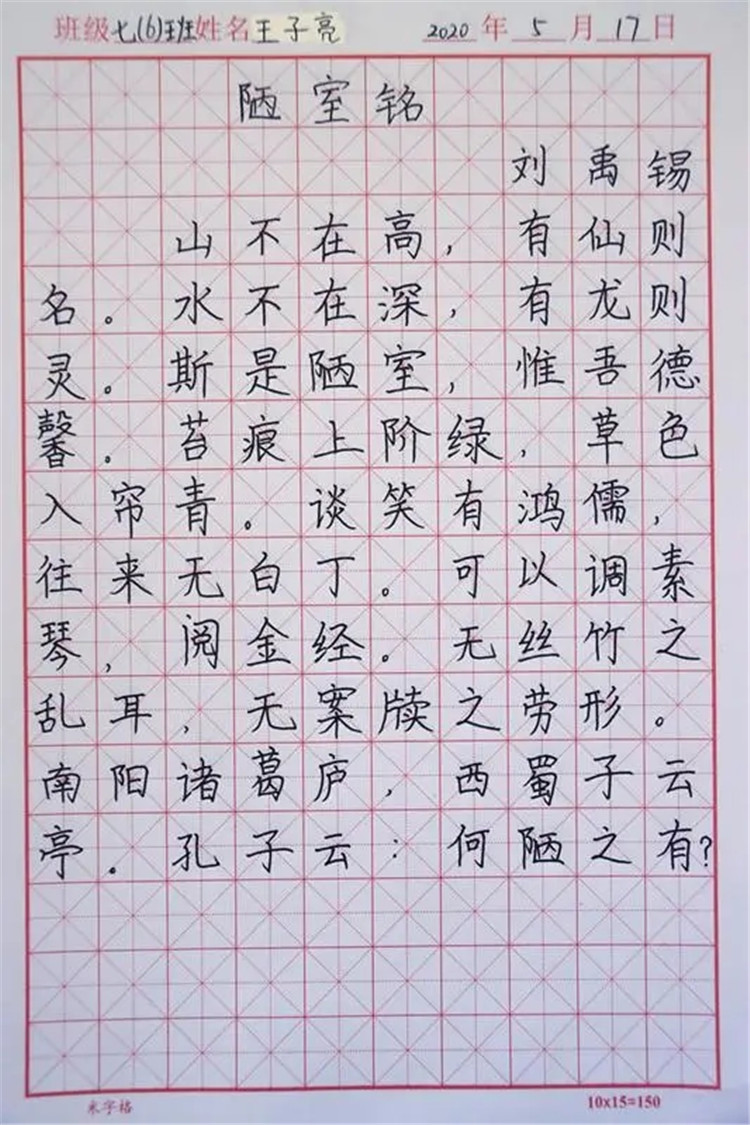 班级七(6)班姓名王子亮 2020年5月17日
陋室铭
刘禹锡
山不在高，有仙则
名。水不在深，有龙则
灵。斯是陋室，惟吾德
馨。苔痕上阶绿，草色
入帘青。谈笑有鸿儒，
往来无白丁。可以调素
琴，阅金经。无丝竹之
乱耳，无案牍之劳形。
南阳诸葛庐，西蜀子云
亭。孔子云：何陋之有？
米字格 10x15=150